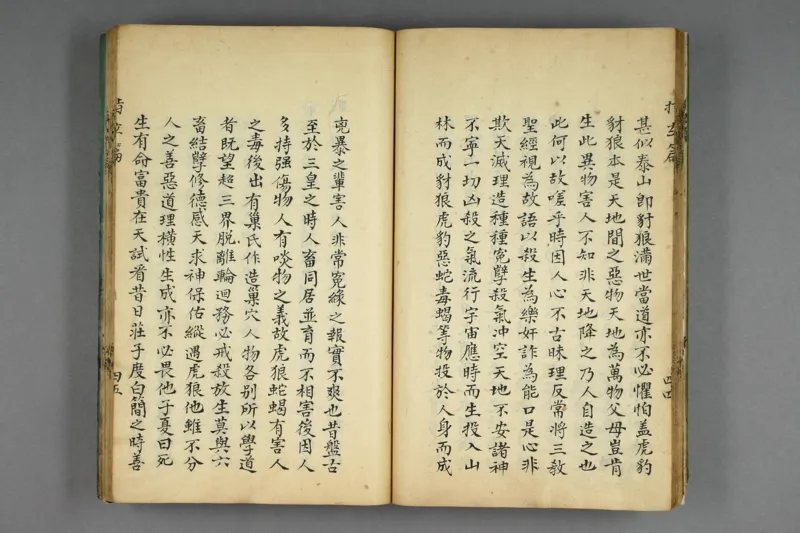 甚似泰山即豺狼滿世當道亦不必懼怕盖虎豹
豺狼本是天地間之惡物天地為萬物父母豈肯
生此異物害人不知非天地降之乃人自造之也
此何以故嗟乎時因人心不古昧理反常將三教
聖經視為故語以殺生為樂奸詐為能口是心非
欺天滅理造種種寃孽殺氣冲空天地不安諸神
不寧一切凶殺之氣流行宇宙應時而生投入山
林而成豺狼虎豹惡蛇毒蝎等物投於人身而成
兇暴之輩害人非常寃緣之報實不爽也昔盤古
至於三皇之時人畜同居並育而不相害後因人
多持强傷物人有啖物之義故虎狼蛇蝎有害人
之毒後出有巢氏作造巢穴人物各别所以學道
者既望超三界脱離輪迴務必戒殺放生莫與六
畜結孽修德感天求神保佑縱遇虎狼他雖不分
人之善惡道理橫性生成亦不必畏他子夏曰死
生有命富貴在天試看昔日莊子度白簡之時善
四四
四五